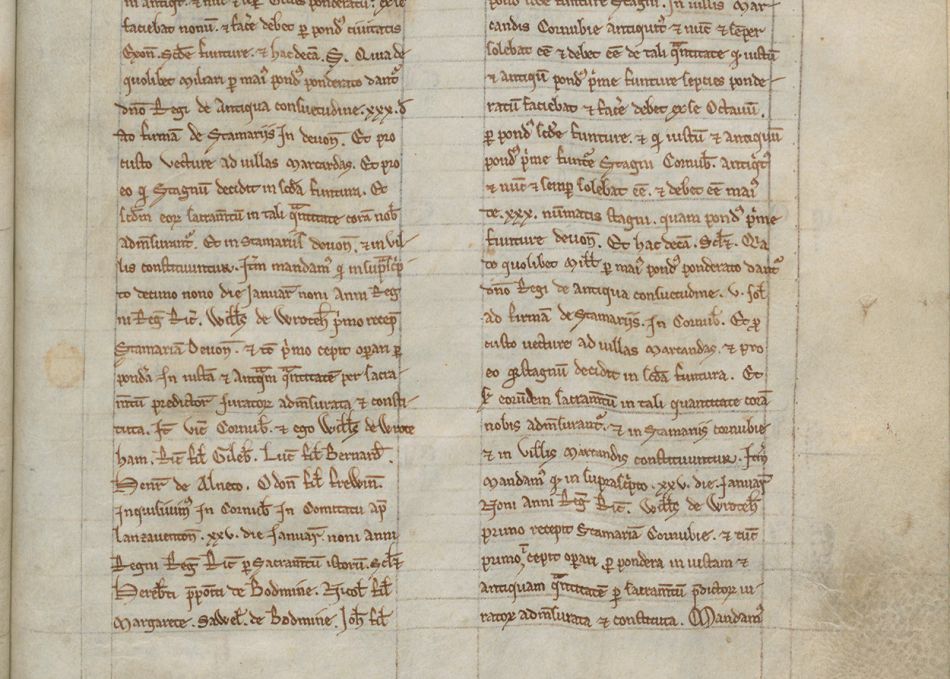 faciebat nonū. ⁊ fac̄e debet ꝑ pond᾽ ciuitatis
Exon̄. Sc̄de funture. ⁊ hac decā. S. Qua de
quolibet Miliari ꝑ mai᾽ pond᾽ ponderato dant᾽
dn̄o Regi de Antiqua consuetudine .xxx. d̄
Ao firmā de Stamariis In deuon̄. Et pro
custo vecture ad villas Marcandas. Et pro
eo qͥ Stagnū decidit in sc̄da funtura. Et
scd̄m eor᾽ sacram̄tū in tali qͣntitate corā nob᾽
Adm̄surant᾽. Et in Stamariis deuon̄. ⁊ in vil
lis constituuntur. Itm̄ mandam᾽ qͥ in supͣsc᾽p
to decimo nono die Januar᾽ noni Anni Reg
ni Reg᾽ Ric᾽. Will̄s de Wroteh᾽ pͥmo recep̄
Stamariā Deuon̄. ⁊ tc̄ pͥmo cepit opari ꝑ
pond᾽a In iustā ⁊ Antiqͣm qͣntitatē per sacra
m̄tū predictor᾽ Iurator᾽ adm̄surata ⁊ consti
tuta. It᾽ vic̄ Cornub᾽. ⁊ ego Will̄s de Wrote
ham. Ric᾽ fil᾽ Gileb᾽. Luc᾽ fil᾽ Bernard᾽.
Henr᾽ de Alneto. Odon᾽ fil᾽ frewin᾽.
Inquisiuim᾽ In Cornub᾽ In Comitatu ap̄
lanzauenton̄. xxv. die Januar᾽. noni Anni
Regni Reg᾽ Ric᾽ ꝑ Sacram̄tū istorū. Scil᾽
Hereb̄ti p̄poi᾽ti de Bodmine. Nicol᾽ fil᾽
Margarete. Sawel᾽. de Bodmine. Joh᾽ fil᾽
candis Cornubie antiquit᾽ ⁊ nūc ⁊ sēper
solebat eē ⁊ debet eē de tali qͣntitate qͥ iustū
⁊ antiqū pond᾽ pͥme funture sepcies ponde
ratū faciebat ⁊ fac̄e debet ex se Octauū.
ꝑ pond᾽ sc̄de funture. ⁊ qͥ iustū ⁊ antiquū
pond᾽ pͥme funt᾽e Stagni Cornub᾽. antiqͥt᾽
⁊ nūc ⁊ semꝑ solebat eē. ⁊ debet eē mai᾽
de .xxx. nūmatis stagni. quam pond᾽ pͥme
funture deuon̄. Et hac decā. Scil᾽. Qͣ
de quolibet Mill᾽ ꝑ mai᾽ pond᾽ ponderato dant᾽
dn̄o Regi de Antiqua consuetudine. v. sol᾽
ad firmā de Stamariis. In Cornub᾽. Et ꝑ
custo vecture ad villas Marcandas. ⁊ pro
eo qͥ Stagnū decidit in sc̄da funtura. Et
eorundem sacram̄tū in tali quantitate corā
nobis adm̄surant᾽. ⁊ in Stamariis cornubie
⁊ in villis Marcandis constituuntur. Itm̄
Mandam᾽ qͥ in supͣsc᾽pto. xxv. die. Januar᾽
Noni Anni Reg᾽ Ric᾽. Will̄s de Wroteh᾽
primo recepit Stamariā Cornubie. ⁊ tūc
primo cepit opari. ꝑ pondera in iustam ⁊
antiquam qͣntitatē ꝑ sacram̄tū p̄dictor᾽ iu
rator᾽ adm̄surata ⁊ constituta. Mandam᾽